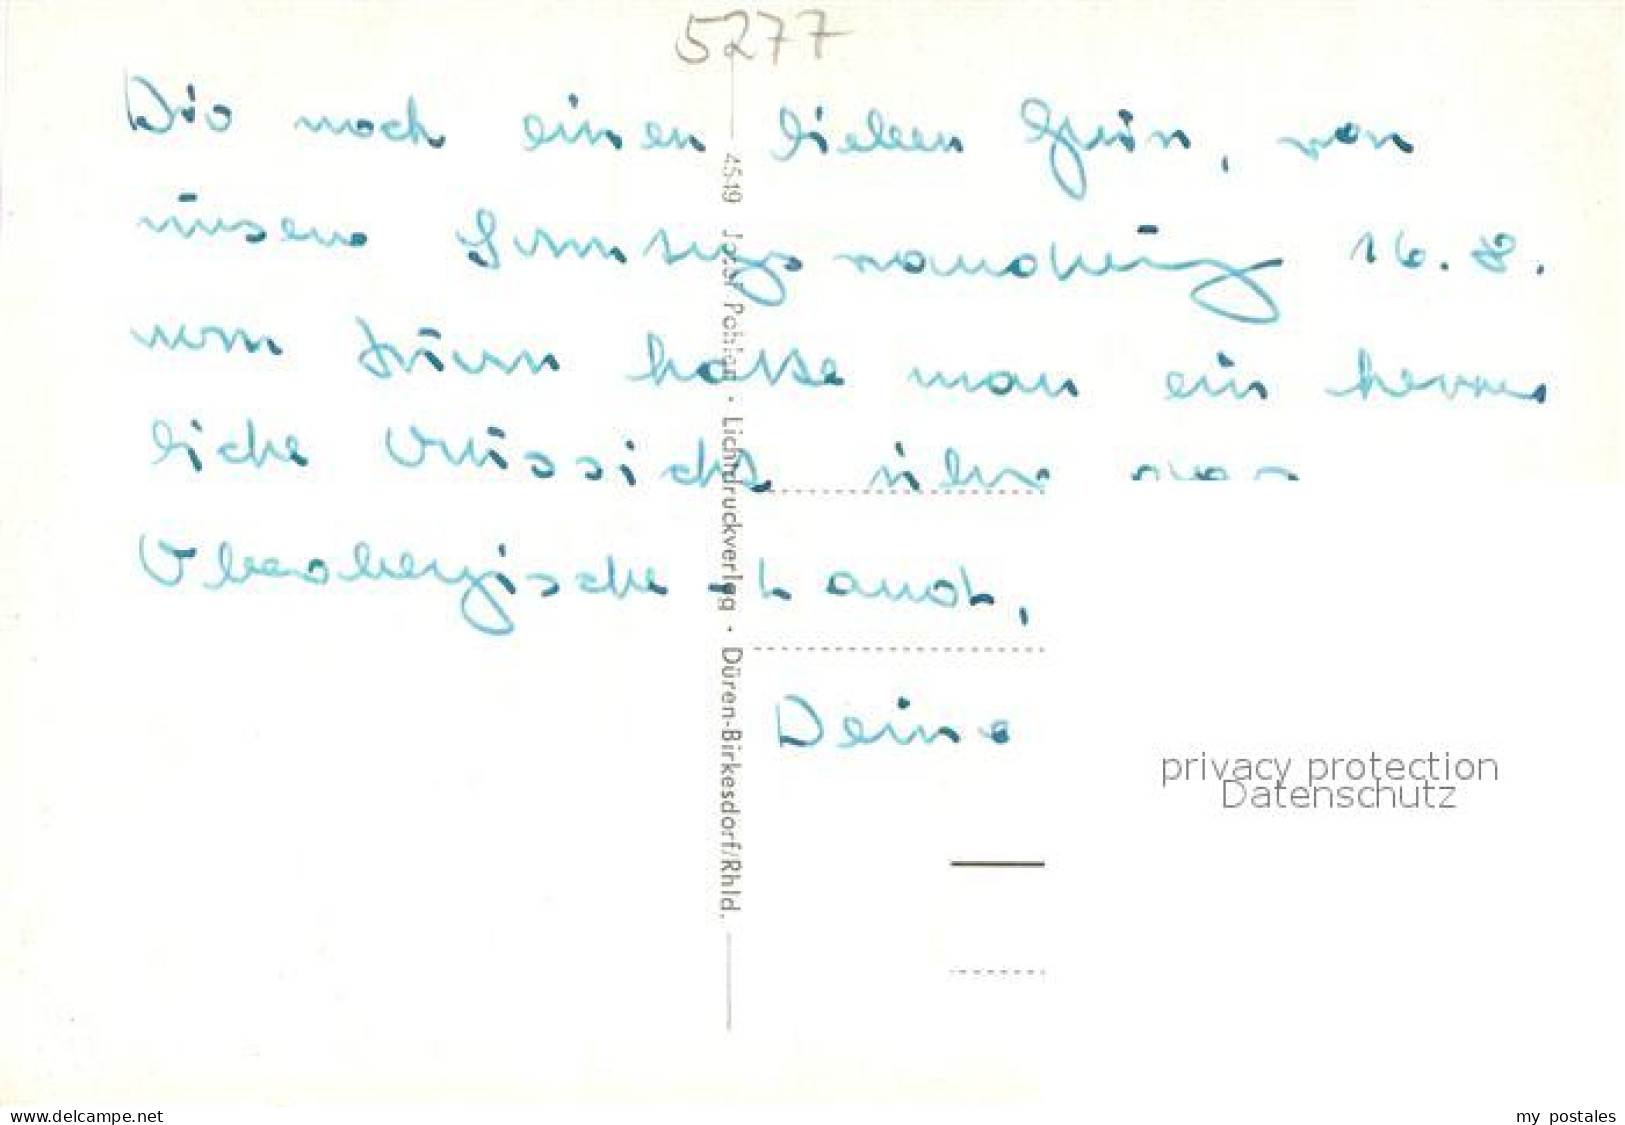 5277
Dir noch einen lieben Gruß, von
unsere Sonntagswanderung 16.8.
vom Turm hatte man ein herr
liche Aussicht über das
Oberbergische Land,
Deine
4549 Josef Pohlen · Lichtdruckverlag · Düren-Birkesdorf/Rhld.
privacy protection
Datenschutz
www.delcampe.net
my postales